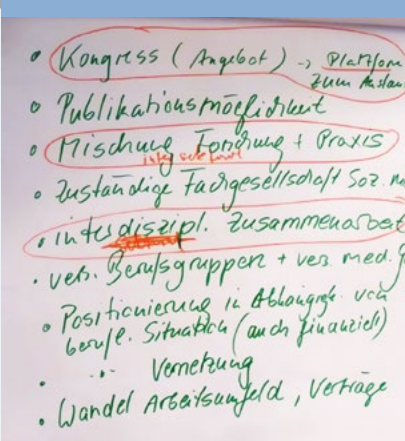 • Kongress (Angebot) → Plattform
zum Austau
• Publikationsmöglichkeit
• Mischung Forschung + Praxis
• Zuständige Fachgesellschaft Soz. M
• interdiszipl. Zusammenarbeit
• vers. Berufsgruppen + vers. med. F
• Positionierung in Abhängigk. von
berufl. Situation (auch finanziell)
• " Vernetzung
• Wandel Arbeitsumfeld, Verträge